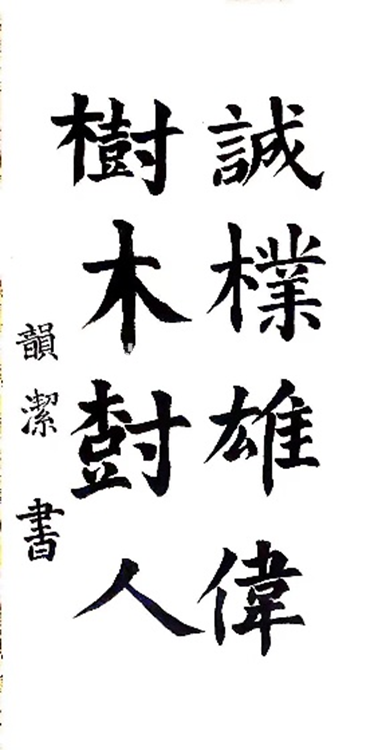 誠樸雄偉
樹木尌人
韻潔書